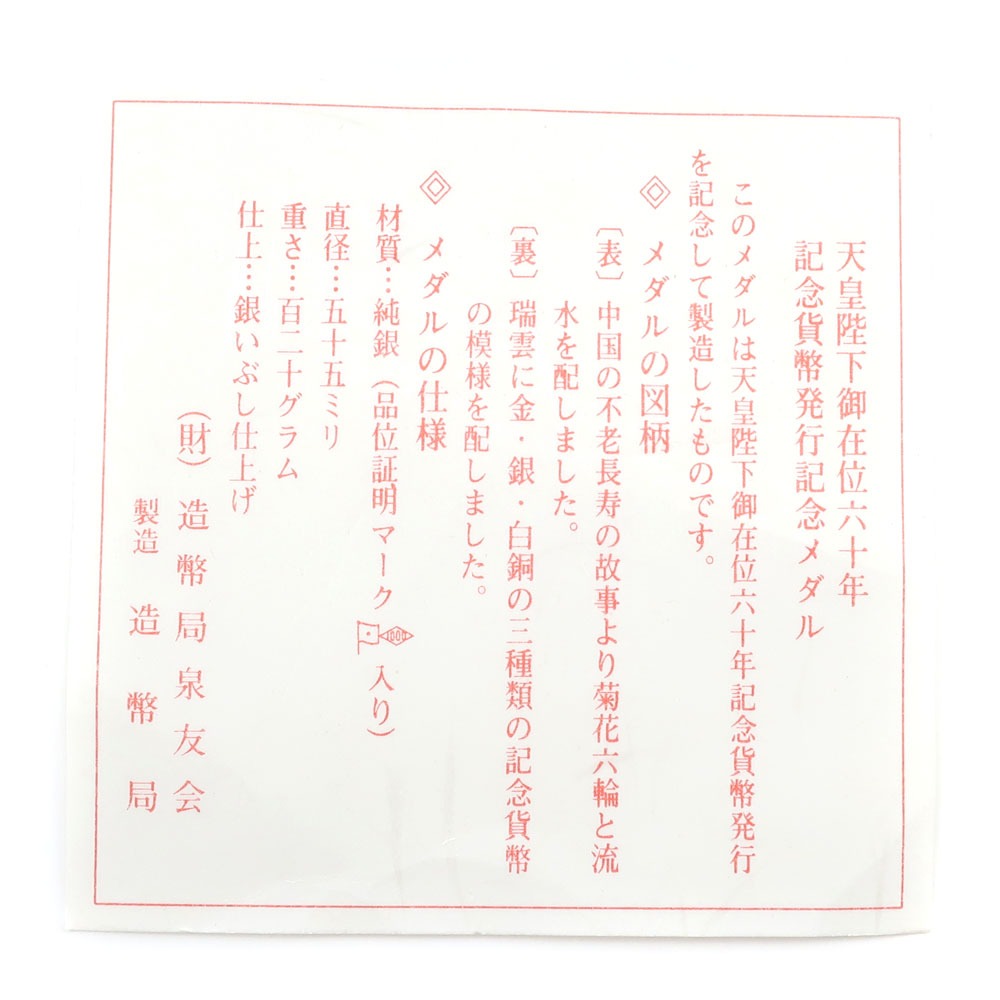 天皇陛下御在位六十年
記念貨幣発行記念メダル
このメダルは天皇陛下御在位六十年記念貨幣発行
を記念して製造したものです。
◈ メダルの図柄
〔表〕 中国の不老長寿の故事より菊花六輪と流
水を配しました。
〔裏〕 瑞雲に金・銀・白銅の三種類の記念貨幣
の模様を配しました。
◈ メダルの仕様
材質…純銀（品位証明マーク 1000 入り）
直径…五十五ミリ
重さ…百二十グラム
仕上…銀いぶし仕上げ
（財）造幣局泉友会
製造 造幣局